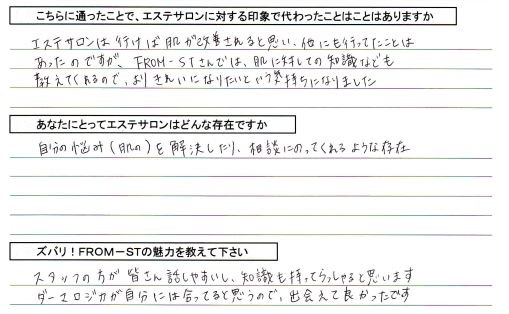 こちらに通ったことで、エステサロンに対する印象で代わったことはことはありますか
エステサロンは行けば肌が改善されると思い、他にも行ってたことは
あったのですが、FROM-STさんでは、肌に対しての知識なども
教えてくれるので、よりきれいになりたいという気持ちになりました
あなたにとってエステサロンはどんな存在ですか
自分の悩み(肌の)を解決したり、相談にのってくれるような存在
ズバリ！FROM－STの魅力を教えて下さい
スタッフの方が皆さん話しやすいし、知識も持ってらっしゃると思います
ダーマロジカが自分には合ってると思うので、出会えて良かったです